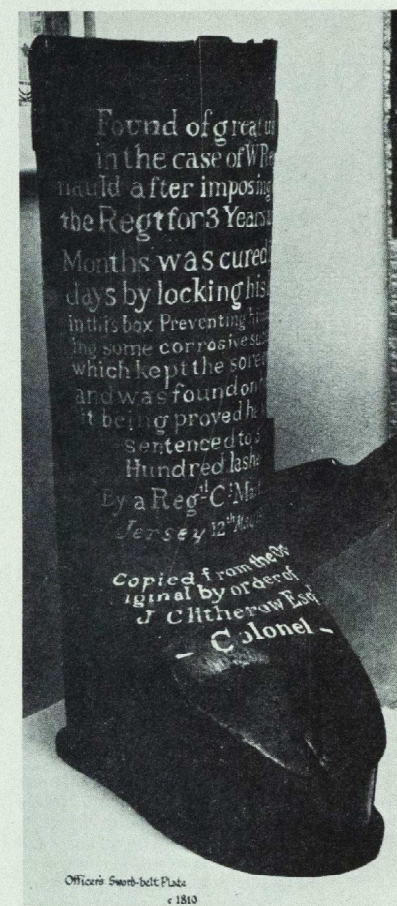 Found of great us
in the case of W Re
nauld after imposing
the Regt for 3 Years
Months was cured
days by locking his
in this box Preventing
ing some corrosive
which kept the sore
and was found on
it being proved he
sentenced to
Hundred lashe
By a Reg.tl C:
Jersey 12th
Copied from the Or
iginal by order of
J Clitherow Esqr
- Colonel -
Officer's Sword-belt Plate
c 1810